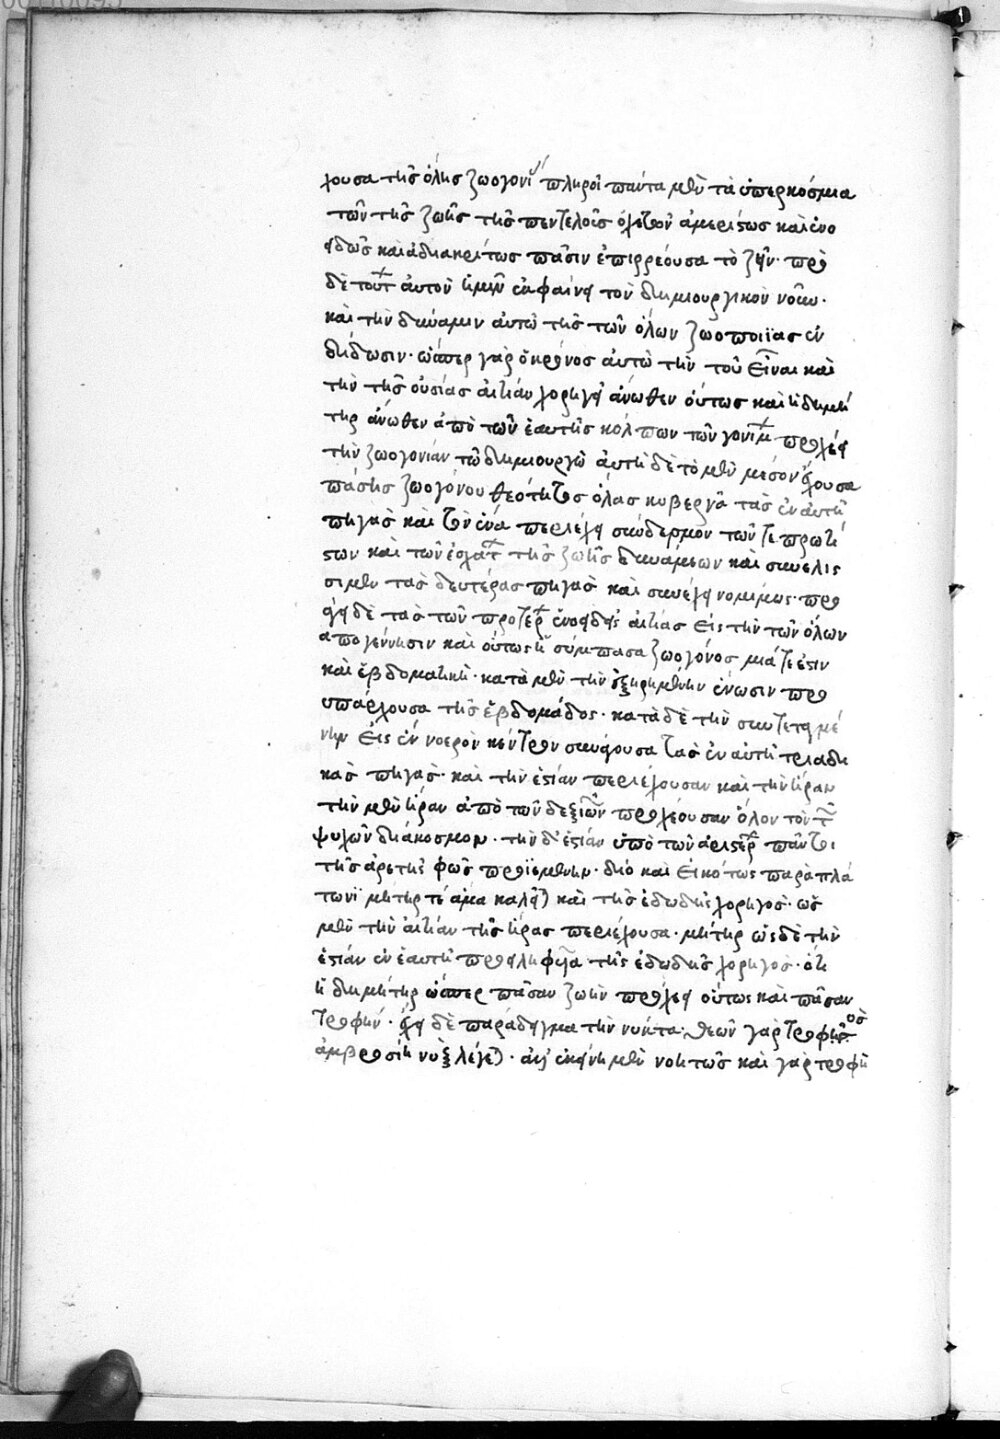 χουσα τῆς ὅλης ζωογονί πληροῖ πάντα μὲν τὰ ὑπερκόσμια
τῶν τῆς ζωῆς τῆς παντελοῦς ὀχετῶν ἀμερίστως καὶ ἑνο
ειδῶς καὶ ἀδιακρίτως πᾶσιν ἐπιρρέουσα τὸ ζῆν· πρὸ
δὲ τούτ αὐτὸν ἡμῖν ἐκφαίνει τὸν δημιουργικὸν νοῦν·
καὶ τὴν δύναμιν αὐτῶ τῆς τῶν ὅλων ζωοποιΐας ἐν
δίδωσιν· ὥσπερ γὰρ ὁ κρόνος αὐτῶ τὴν τοῦ εἶναι καὶ
τὴν τῆς οὐσίας αἰτίαν χορηγεῖ ἄνωθεν οὕτως καὶ ἡ δημή
τηρ ἄνωθεν ἀπὸ τῶν ἑαυτῆς κόλπων τῶν γονίμ προχέει
τὴν ζωογονίαν τῶ δημιουργῶ αὐτὴ δὲ τὸ μὲν μέσον ἔχουσα
πάσης ζωογόνου θεότητος ὅλας κυβερνᾶ τὰς ἐν αὐτῆ
πηγὰς καὶ τὸν ἕνα περιέχει σύνδεσμον τῶν τε πρωτί
στων καὶ τῶν ἐσχάτ τῆς ζωῆς δυνάμεων καὶ συνελίς
σι μὲν τὰς δευτέρας πηγὰς καὶ συνέχει νομίμως· προ
άγει δὲ τὰς τῶν προτέρ ἑνοειδεῖς αἰτίας εἰς τὴν τῶν ὅλων
ἀπογέννησιν καὶ οὕτως ἡ σύμπασα ζωογόνος μία τε ἐστὶν
καὶ ἑβδοματική· κατὰ μὲν τὴν ἐξηρημένην ἕνωσιν προ
υπάρχουσα τῆς ἑβδομάδος· κατὰ δὲ τὴν συντεταγμέ
νην εἰς ἓν νοερὸν κέντρον συνάγουσα τὰς ἐν αὐτῆ τριαδι
κὰς πηγὰς· καὶ τὴν ἑστίαν περιέχουσαν καὶ τὴν ἥραν
τὴν μὲν ἥραν ἀπὸ τῶν δεξιῶν προχέουσαν ὅλον τὸν τ
ψυχῶν διάκοσμον· τὴν δ' ἑστίαν ὑπὸ τῶν ἀριστερ παντὶ
τῆς ἀρετῆς φῶς προϊεμένην· διὸ καὶ εἰκότως παρὰ πλά
τωνι μήτηρ τε ἅμα καλεῖ) καὶ τῆς ἐδωδῆς χορηγὸς· ὡς
μὲν τὴν αἰτίαν τῆς ἥρας περιέχουσα· μήτηρ ὡς δὲ τὴν
ἑστίαν ἐν ἑαυτῆ προειληφυῖα τῆς ἐδωδῆς χορηγὸς· ὅτι
ἡ δημήτηρ ὥσπερ πᾶσαν ζωὴν προχέει οὕτως καὶ πᾶσαν
τροφήν· ἔχει δὲ παράδειγμα τὴν νύκτα· θεῶν γὰρ τροφὸς
ἀμβροσίη νὺξ λέγε)· ἀλλ' ἐκείνη μὲν νοητῶς καὶ γὰρ τροφὴ